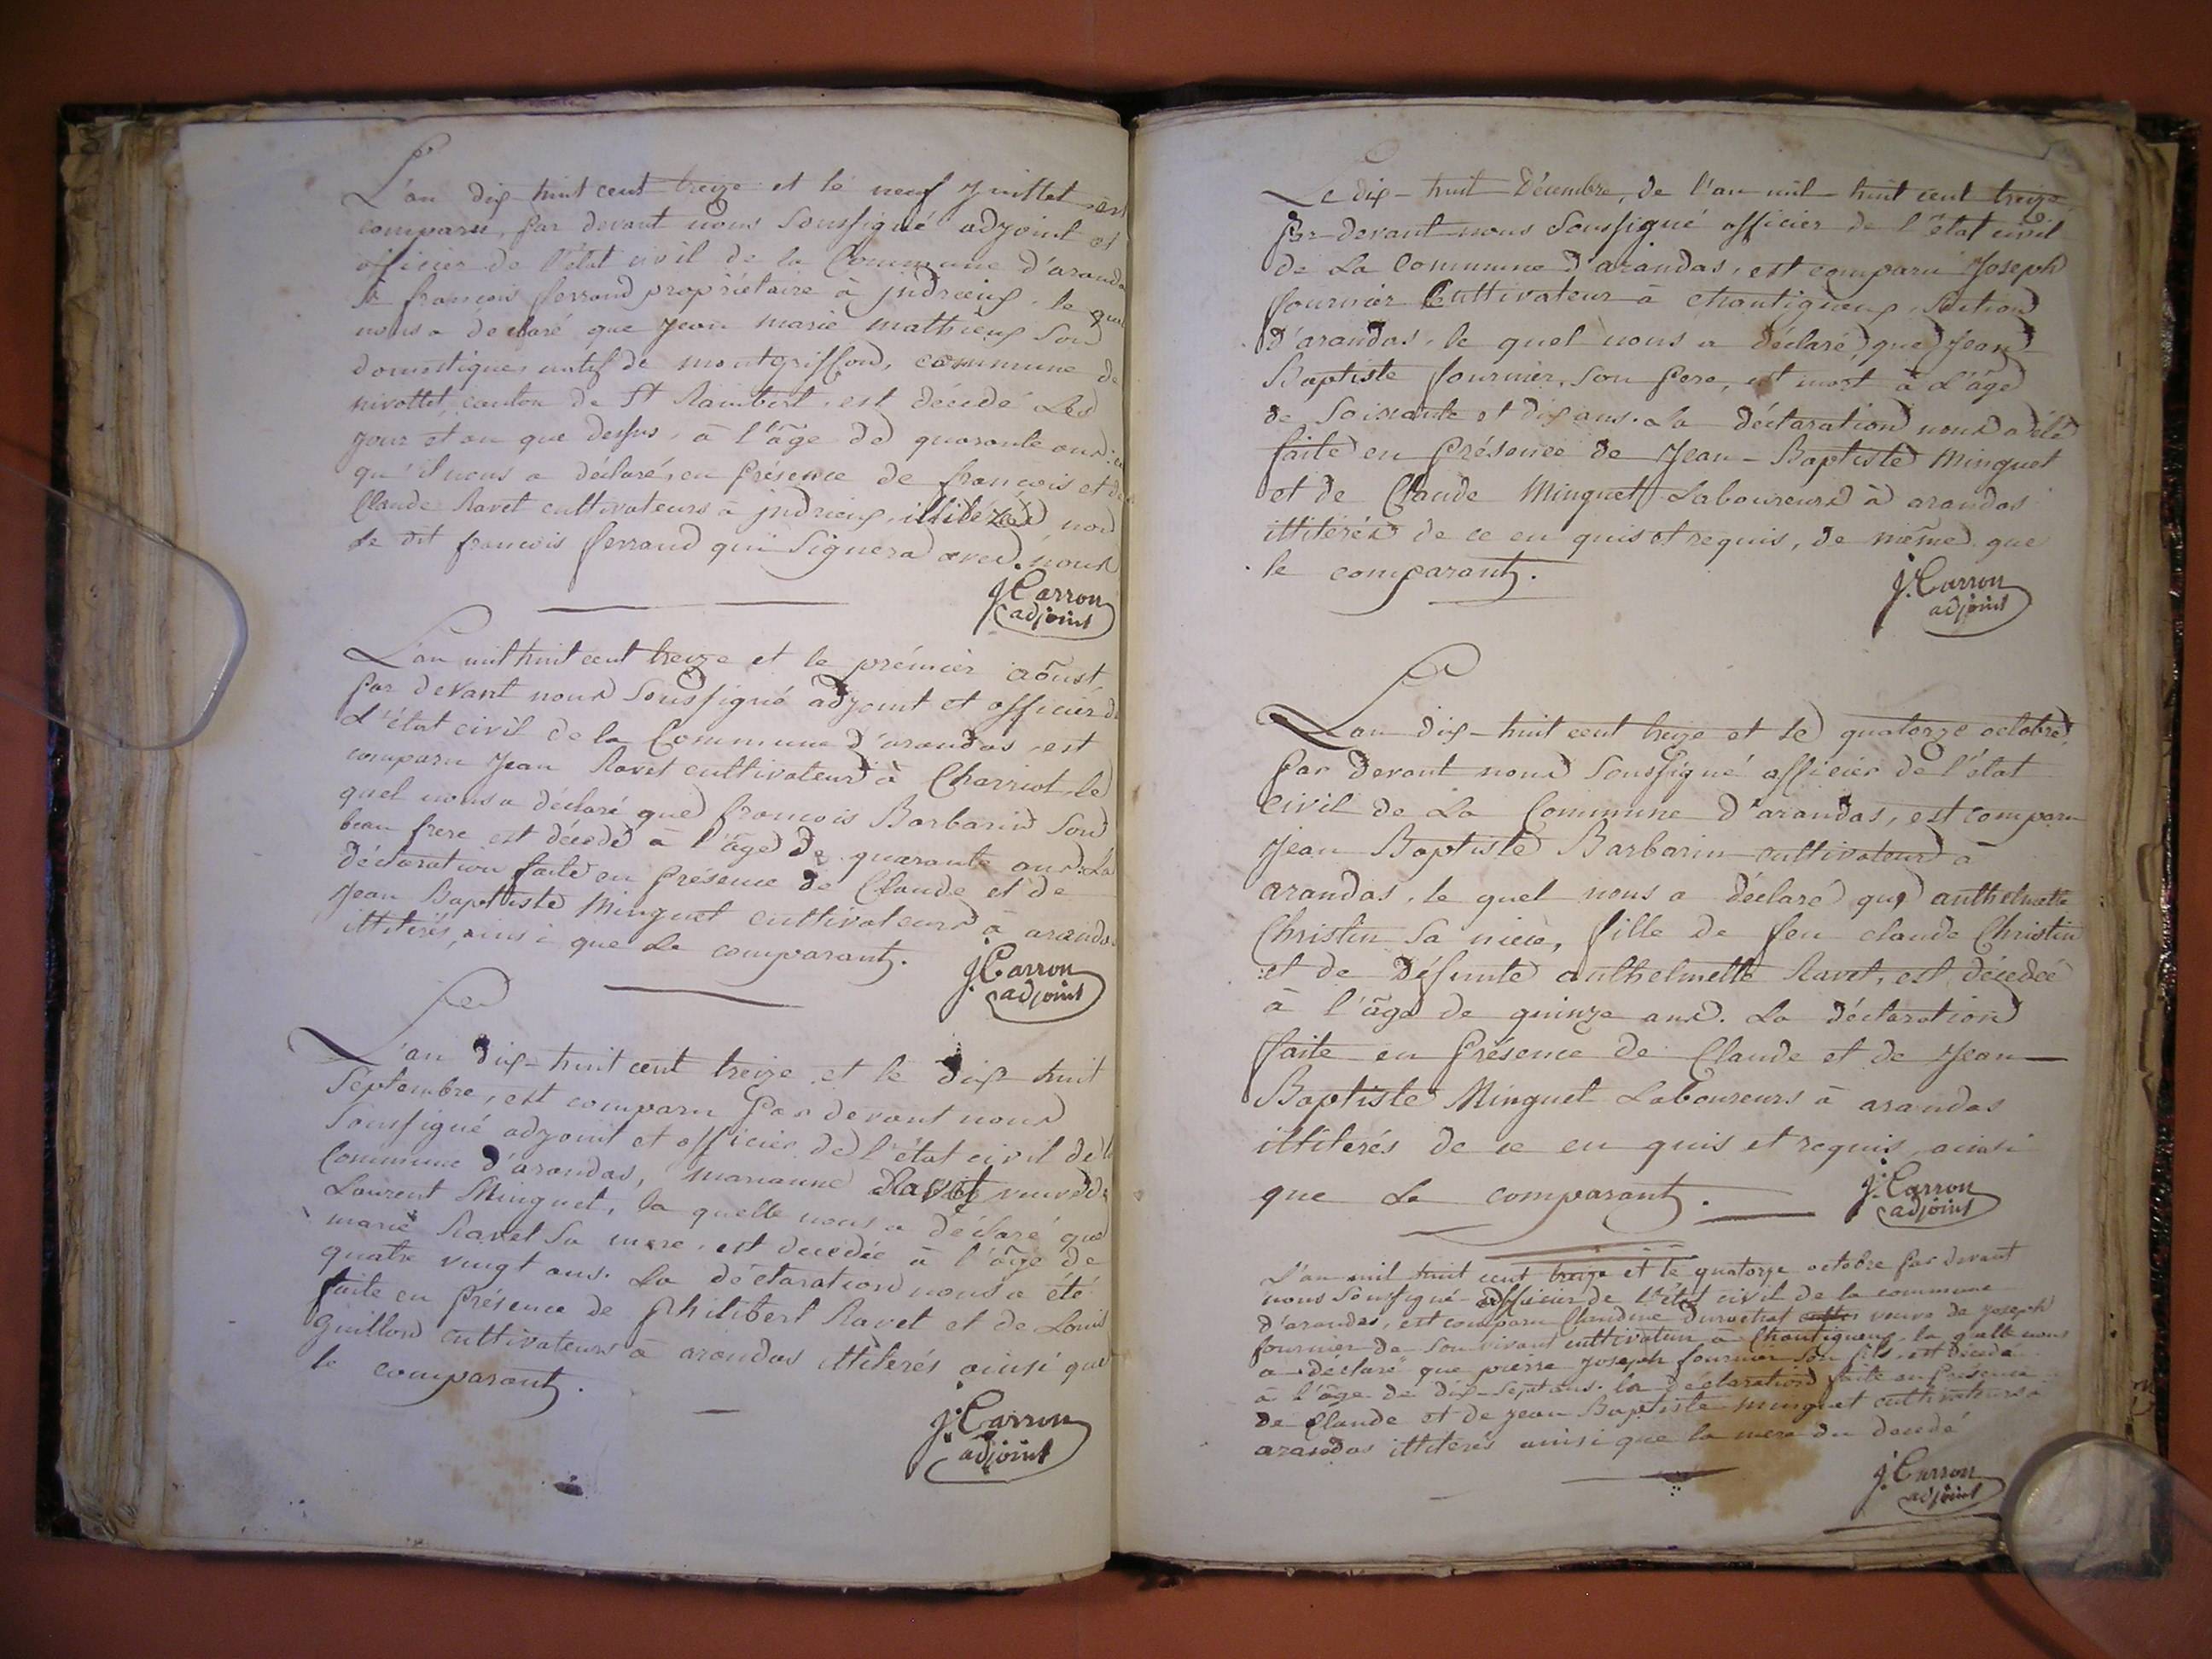 L'an dix huit cent treize et le neuf Juillet est
comparu, par devant nous Soussigné adjoint et
officier de l'état civil de la Commune d'aranda
Sr françois ferrand propriétaire à jndrieux, le quel
nous a déclaré que Jean marie mathieux Son
domestique, natif de montgriffon, commune de
nivollet, canton de St Rambert, est décédé Les
jour et an que dessus, à l'âge de quarante ans: ce
qu'il nous a déclaré, en présence de françois et de
Claude Ravet cultivateurs à jndrieux, illitérés non
le dit francois ferrand qui Signera avec nous
J. Carron
adjoint
L'an mil huit cent treize et le prémier aôust,
par devant nous Soussigné adjoint et officier de
L'état civil de la Commune d'arandas, est
comparu Jean Ravet cultivateur à Charriot, le
quel nous a déclaré que francois Barbarin Son
beau frere est décédé à l'âge de quarante ans. La
déclaration faite en présence de Claude et de
Jean Baptiste Minguet cultivateurs à arandas
illitérés, ainsi que le comparant.
J. Carron
adjoint
L'an dix-huit cent treize et le dix-huit
Septembre, est comparu par devant nous
Soussigné adjoint et officier de l'état civil de la
Commune d'arandas, marianne Ravet veuve de
Laurent Minguet, la quelle nous a déclaré que
marie Ravet Sa mere, est decédée à l'âge de
quatre vingt ans. La déclaration nous a été
faite en présence de philibert Ravet et de Louis
Guillon cultivateurs à arandas illitérés ainsi que
le comparant.
J. Carron
adjoint
Le dix-huit Décembre, de l'an mil-huit cent treize,
par-devant nous Soussigné officier de l'état civil
de La Commune d'arandas, est comparu Joseph
fournier Cultivateur à chantigneux, Section
d'arandas, le quel nous a déclaré, que Jean
Baptiste fournier, Son pere, est mort à l'âge
de Soixante et dix ans. La déclaration nous a été
faite en présence de Jean-Baptiste Minguet
et de Claude Minguet Laboureurs à arandas
illitérés de ce en quis et requis, de même que
le comparant.
J. Carron
adjoint
L'an dix-huit cent treize et le quatorze octobre,
par devant nous Soussigné officier de l'état
civil de La Commune d'arandas, est comparu
Jean Baptiste Barbarin cultivateur à
arandas, le quel nous a déclaré que anthelmette
Christin Sa niece, fille de feu claude Christin
et de défunte anthelmette Ravet, est décedée
à l'âge de quinze ans. La déclaration
faite en présence de Claude et de Jean
Baptiste Minguet Laboureurs à arandas
illiterés de ce en quis et requis, ainsi
que le comparant.
J. Carron
adjoint
L'an mil huit cent treize et le quatorze octobre par devant
nous Soussigné officier de l'état civil de la commune
d'arandas, est comparu Claudine durochat veuve de joseph
fournier de Son vivant cultivateur à Chantigneux, la quelle nous
a déclaré que pierre joseph fournier Son fils, est décédé
à l'âge de dix-Sept ans. La déclaration faite en présence
de Claude et de jean Baptiste minguet cultivateurs à
arandas illiterés ainsi que la mere du decedé
J. Carron
adjoint